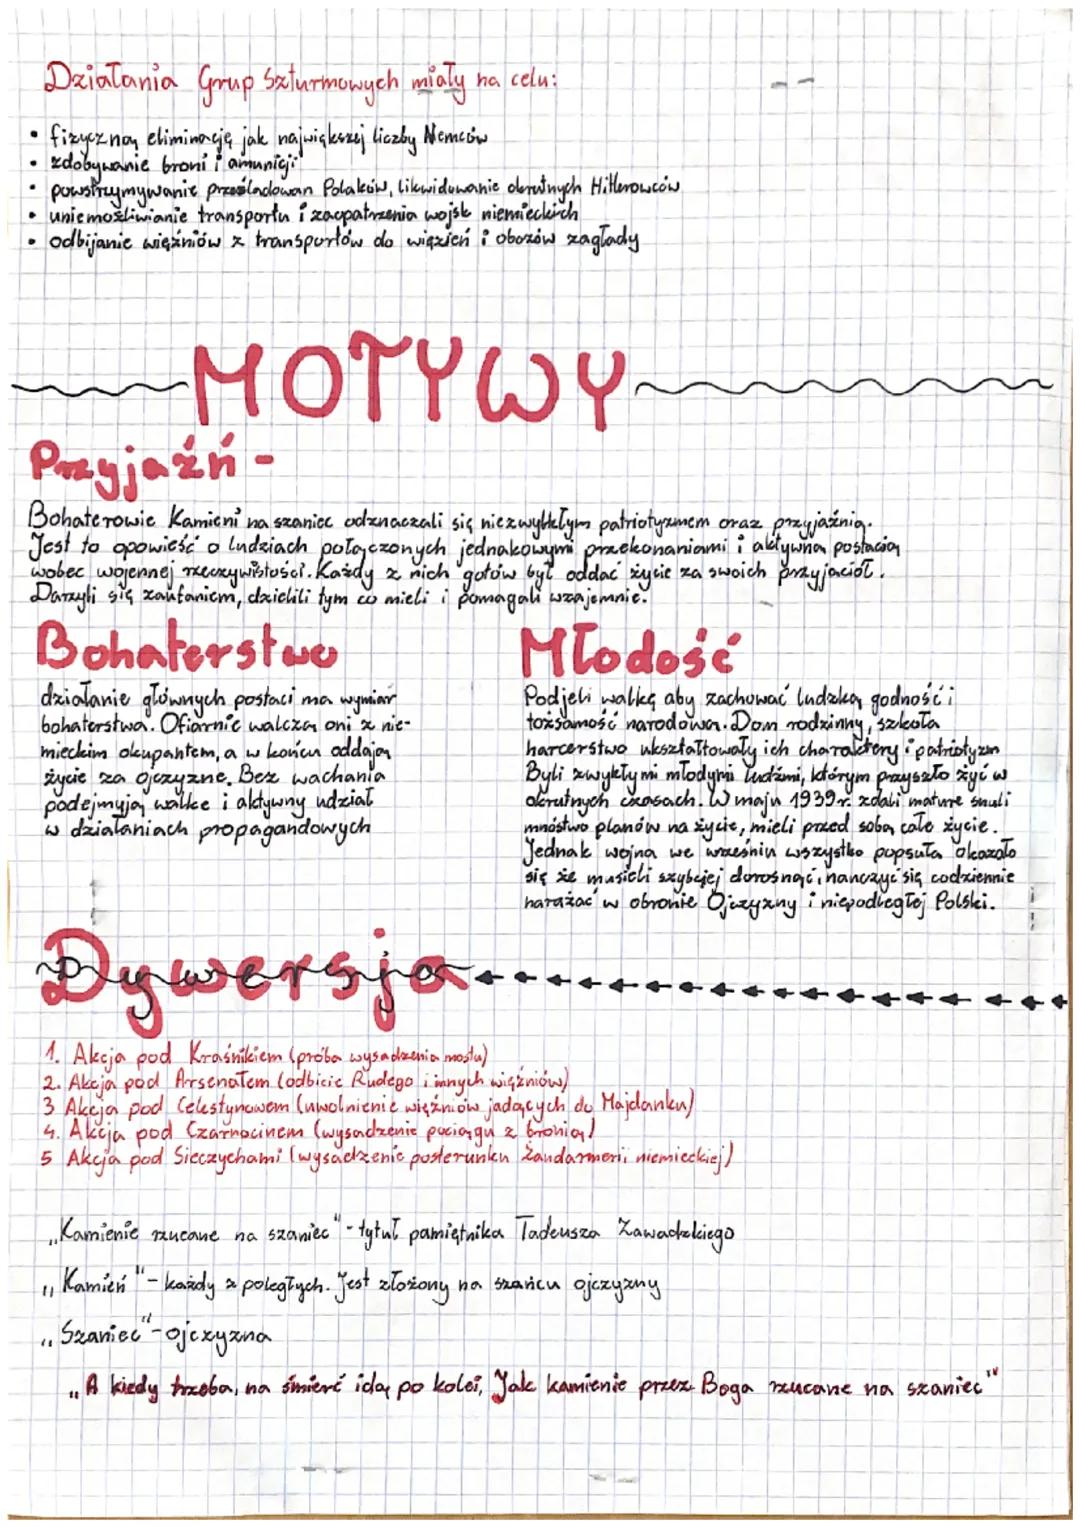 Działania Grup Szturmowych miały na celu:
• fizyczną eliminację jak największej liczby Niemców
• zdobywanie broni i amunicji
• powstrzymywanie prześladowan Polaków, likwidowanie okrutnych Hitlerowców
• uniemożliwianie transportu i zaopatrzenia wojsk niemieckich
• odbijanie więźniów z transportów do więzień i obozów zagłady
MOTYWY
Przyjaźń -
Bohaterowie Kamieni na szaniec odznaczali się niezwykłym patriotyzmem oraz przyjaźnią.
Jest to opowieść o ludziach połączonych jednakowymi przekonaniami i aktywną postacią
wobec wojennej rzeczywistości. Każdy z nich gotów był oddać życie za swoich przyjaciół.
Darzyli się zaufaniem, dzielili tym co mieli i pomagali wzajemnie.
Bohaterstwo
działanie głównych postaci ma wymiar
bohaterstwa. Ofiarnie walczą oni z nie-
mieckim okupantem, a w końcu oddają
życie za ojczyzne. Bez wachania
podejmyją walke i aktywny udział
w działaniach propagandowych
Młodość
Podjeli walkę aby zachować ludzką godność i
tożsamość narodową. Dom rodzinny, szkoła
harcerstwo ukształtowały ich charaktery i patriotyzm
Byli zwykłymi młodymi ludźmi, którym przyszło żyć w
okrutnych czasach. W maju 1939r. zdali mature snuli
mnóstwo planów na życie, mieli przed sobą całe życie.
Jednak wojna we wrześniu wszystko popsuła okazało
się że musieli szybciej dorosnąć, nauczyć się codziennie
narażać w obronie Ojczyzny i niepodległej Polski.
Dywersja
1. Akcja pod Kraśnikiem (próba wysadzenia mostu)
2. Akcja pod Arsenałem (odbicie Rudego i innych więźniów)
3 Akcja pod Celestynowem (uwolnienie więźniów jadących do Majdanku)
4. Akcja pod Czarnocinem (wysadzenie pociągu z bronią)
5 Akcja pod Sieczychami (wysadzenie posterunku Żandarmerii niemieckiej)
„Kamienie rzucane na szaniec" - tytuł pamiętnika Tadeusza Zawadzkiego
„Kamień" - każdy z poległych. Jest złożony na szańcu ojczyzny
„Szaniec" - ojczyzna
„A kiedy trzeba, na śmierć idą po kolei, Jak kamienie przez Boga rzucane na szaniec"